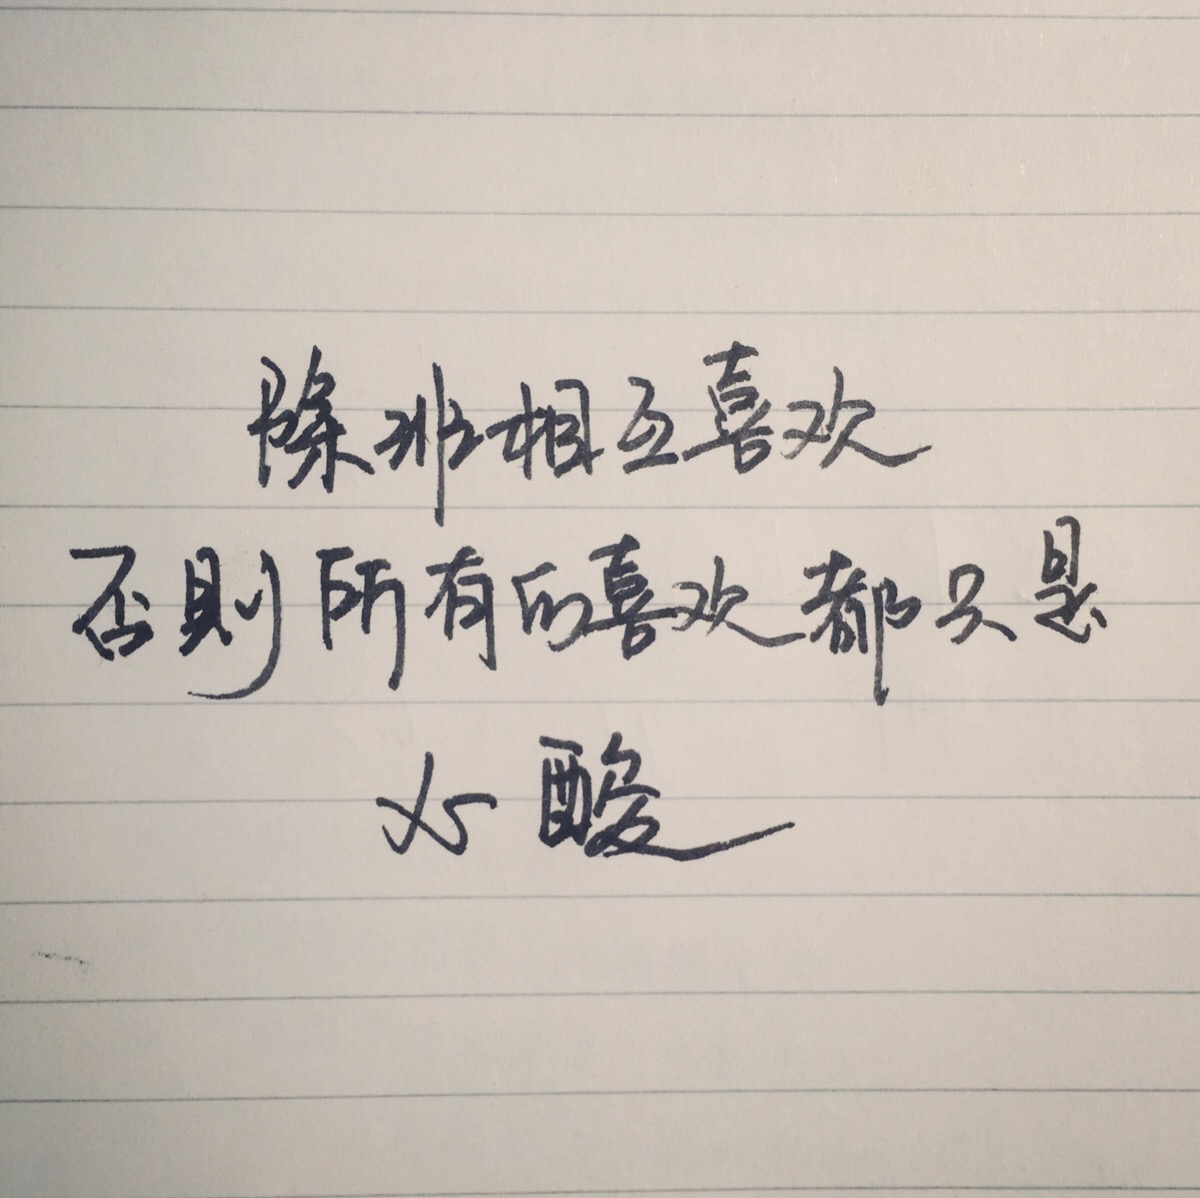 除非相互喜欢
否則所有的喜欢都只是
心酸